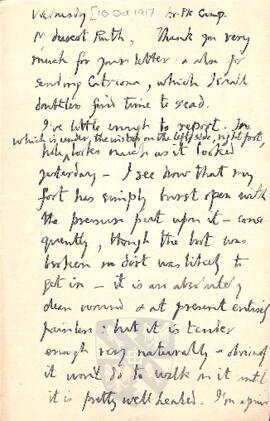 Wednesday [10 Oct 1917 Ar. Pk Camp.
Dearest Ruth, Thank you very
much for your letter & also for
sending Catriona, which I shall
doubtless find time to read.
I've little enough to report. You
which is under the instep on the left side, right foot,
hole, looks much as it looked
yesterday – I see now that my
foot has simply burst open with
the pressure put upon it – conse
quently, though the boot was
broken no dirt was likely to
get in – it is an absolutely
clean wound & at present entirely
painless: but it is tender
enough very naturally & obviously
it won't do to walk on it until
it is pretty well healed. I'm a